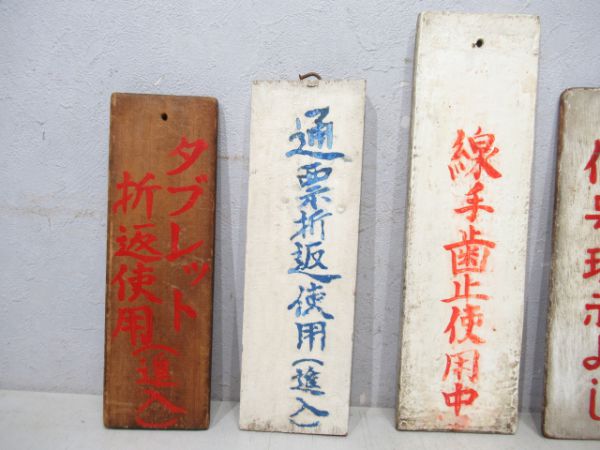 タブレット
折返使用(進入)
通票折返使用(進入)
線手歯止使用中
信号現示よし